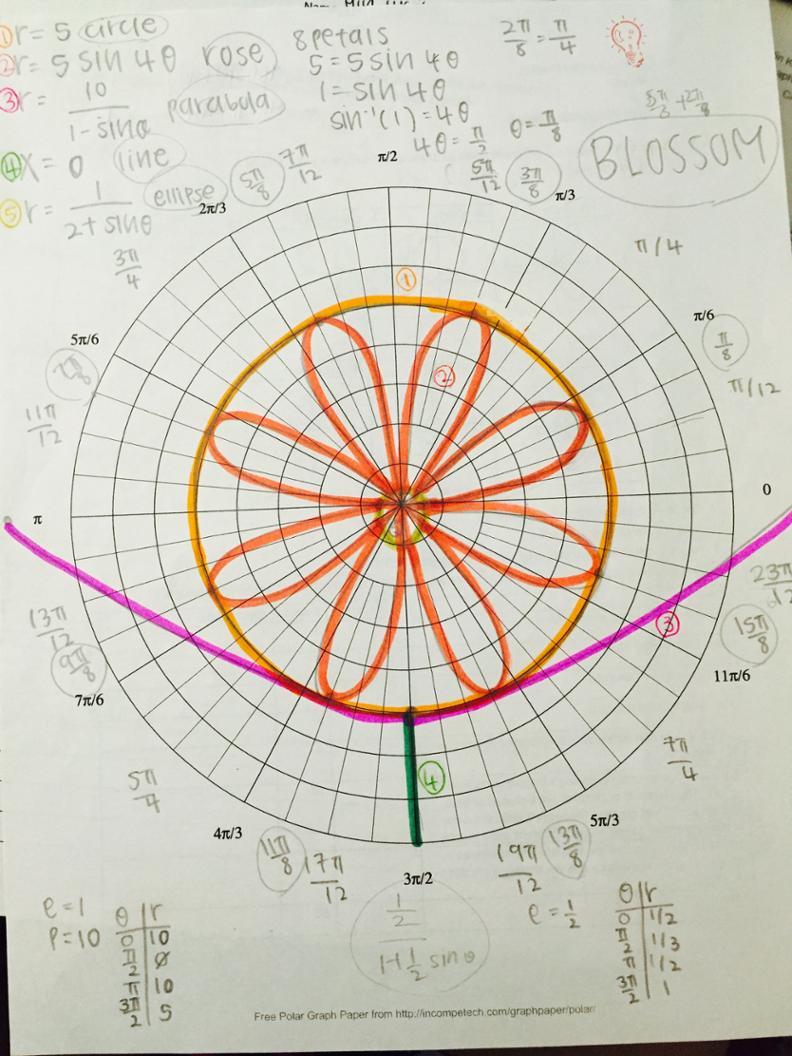 ① r = 5 circle
② r = 5 sin 4θ rose
③ r = 10 / 1 - sinθ parabula
④ x = 0 line
⑤ r = 1 / 2 + sinθ ellipse
8 petals
5 = 5 sin 4θ
1 = sin 4θ
sin⁻¹(1) = 4θ
4θ = π/2 θ = π/8
2π/8 = π/4
BLOSSOM
5π/8 7π/12 π/2 5π/12 3π/8
2π/3 π/3
3π/4 π/4
5π/6 π/6
7π/8 π/8
11π/12 π/12
①
②
π 0
23π/12
13π/12 ③ 15π/8
9π/8
7π/6 11π/6
④
5π/4 7π/4
4π/3 5π/3
11π/8 17π/12 3π/2 19π/12 13π/8
e = 1
p = 10
θ | r
0 | 10
π/2 | ø
π | 10
3π/2 | 5
1/2 / 1 + 1/2 sin θ
e = 1/2
θ | r
0 | 1/2
π/2 | 1/3
π | 1/2
3π/2 | 1
Free Polar Graph Paper from http://incompetech.com/graphpaper/polar/